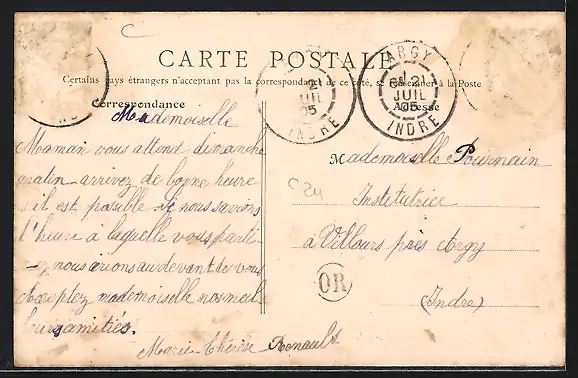 C
CARTE POSTALE
Certains pays étrangers n'acceptant pas la correspondance de ce côté, se renseigner à la Poste
Correspondance
Adresse
ARGY
21
JUIL
05
INDRE
21
05
INDRE
Mademoiselle
Maman vous attend dimanche
matin arrivez de bonne heure
s'il est posible Si nous savions
l'heure à laquelle vous parti-
nous irions au devant de vous
Acceptez mademoiselle nos meil
leurs amitiés.
Marie Thérèse Renault
Mademoiselle Pournain
Institutrice
à Villours près Argy
(Indre)
OR